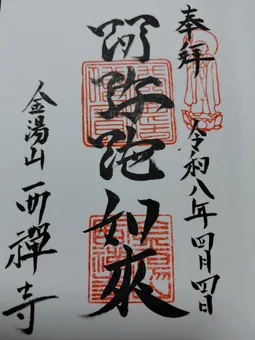 奉拝
令和八年四月四日
阿弥陀如来
金湯山
西禅寺